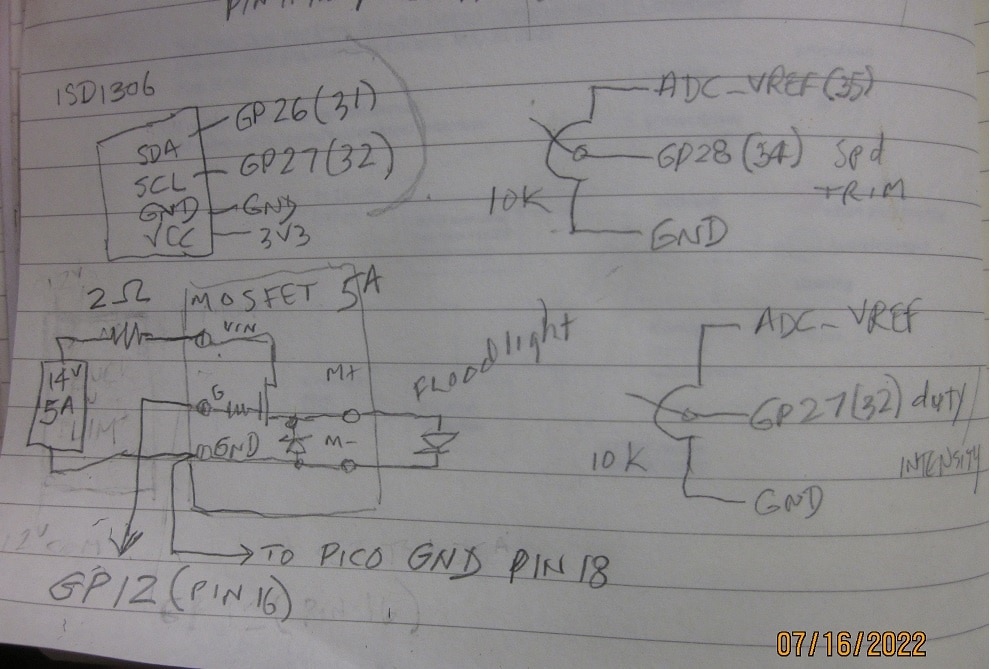 ISD1306
SDA
SCL
GND
VCC
GP26 (31)
GP27 (32)
GND
3V3
ADC_VREF (35)
GP28 (34) Spd
TRIM
10K
GND
2Ω
MOSFET 5A
VIN
14V
5A
G
GND
M+
M-
FLOODlight
ADC_VREF
GP27 (32) duty
INTENSITY
10K
GND
TO PICO GND PIN 18
GP12 (PIN 16)
07/16/2022